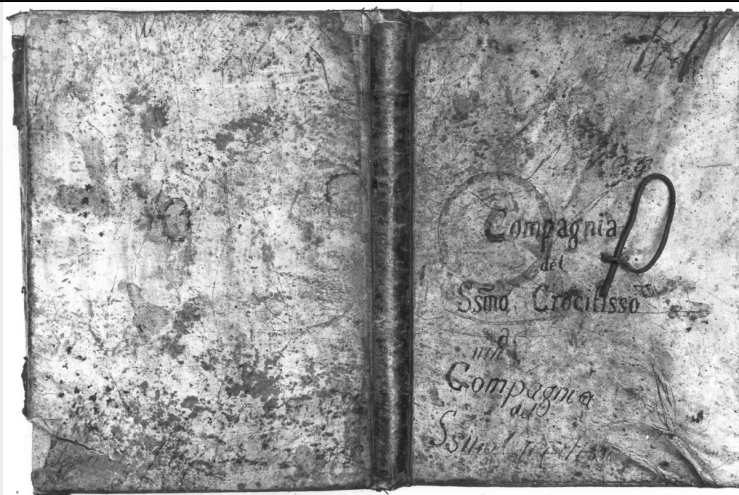 Compagnia
del
Ssmo Crocifisso
Compagnia
del
Ssmo